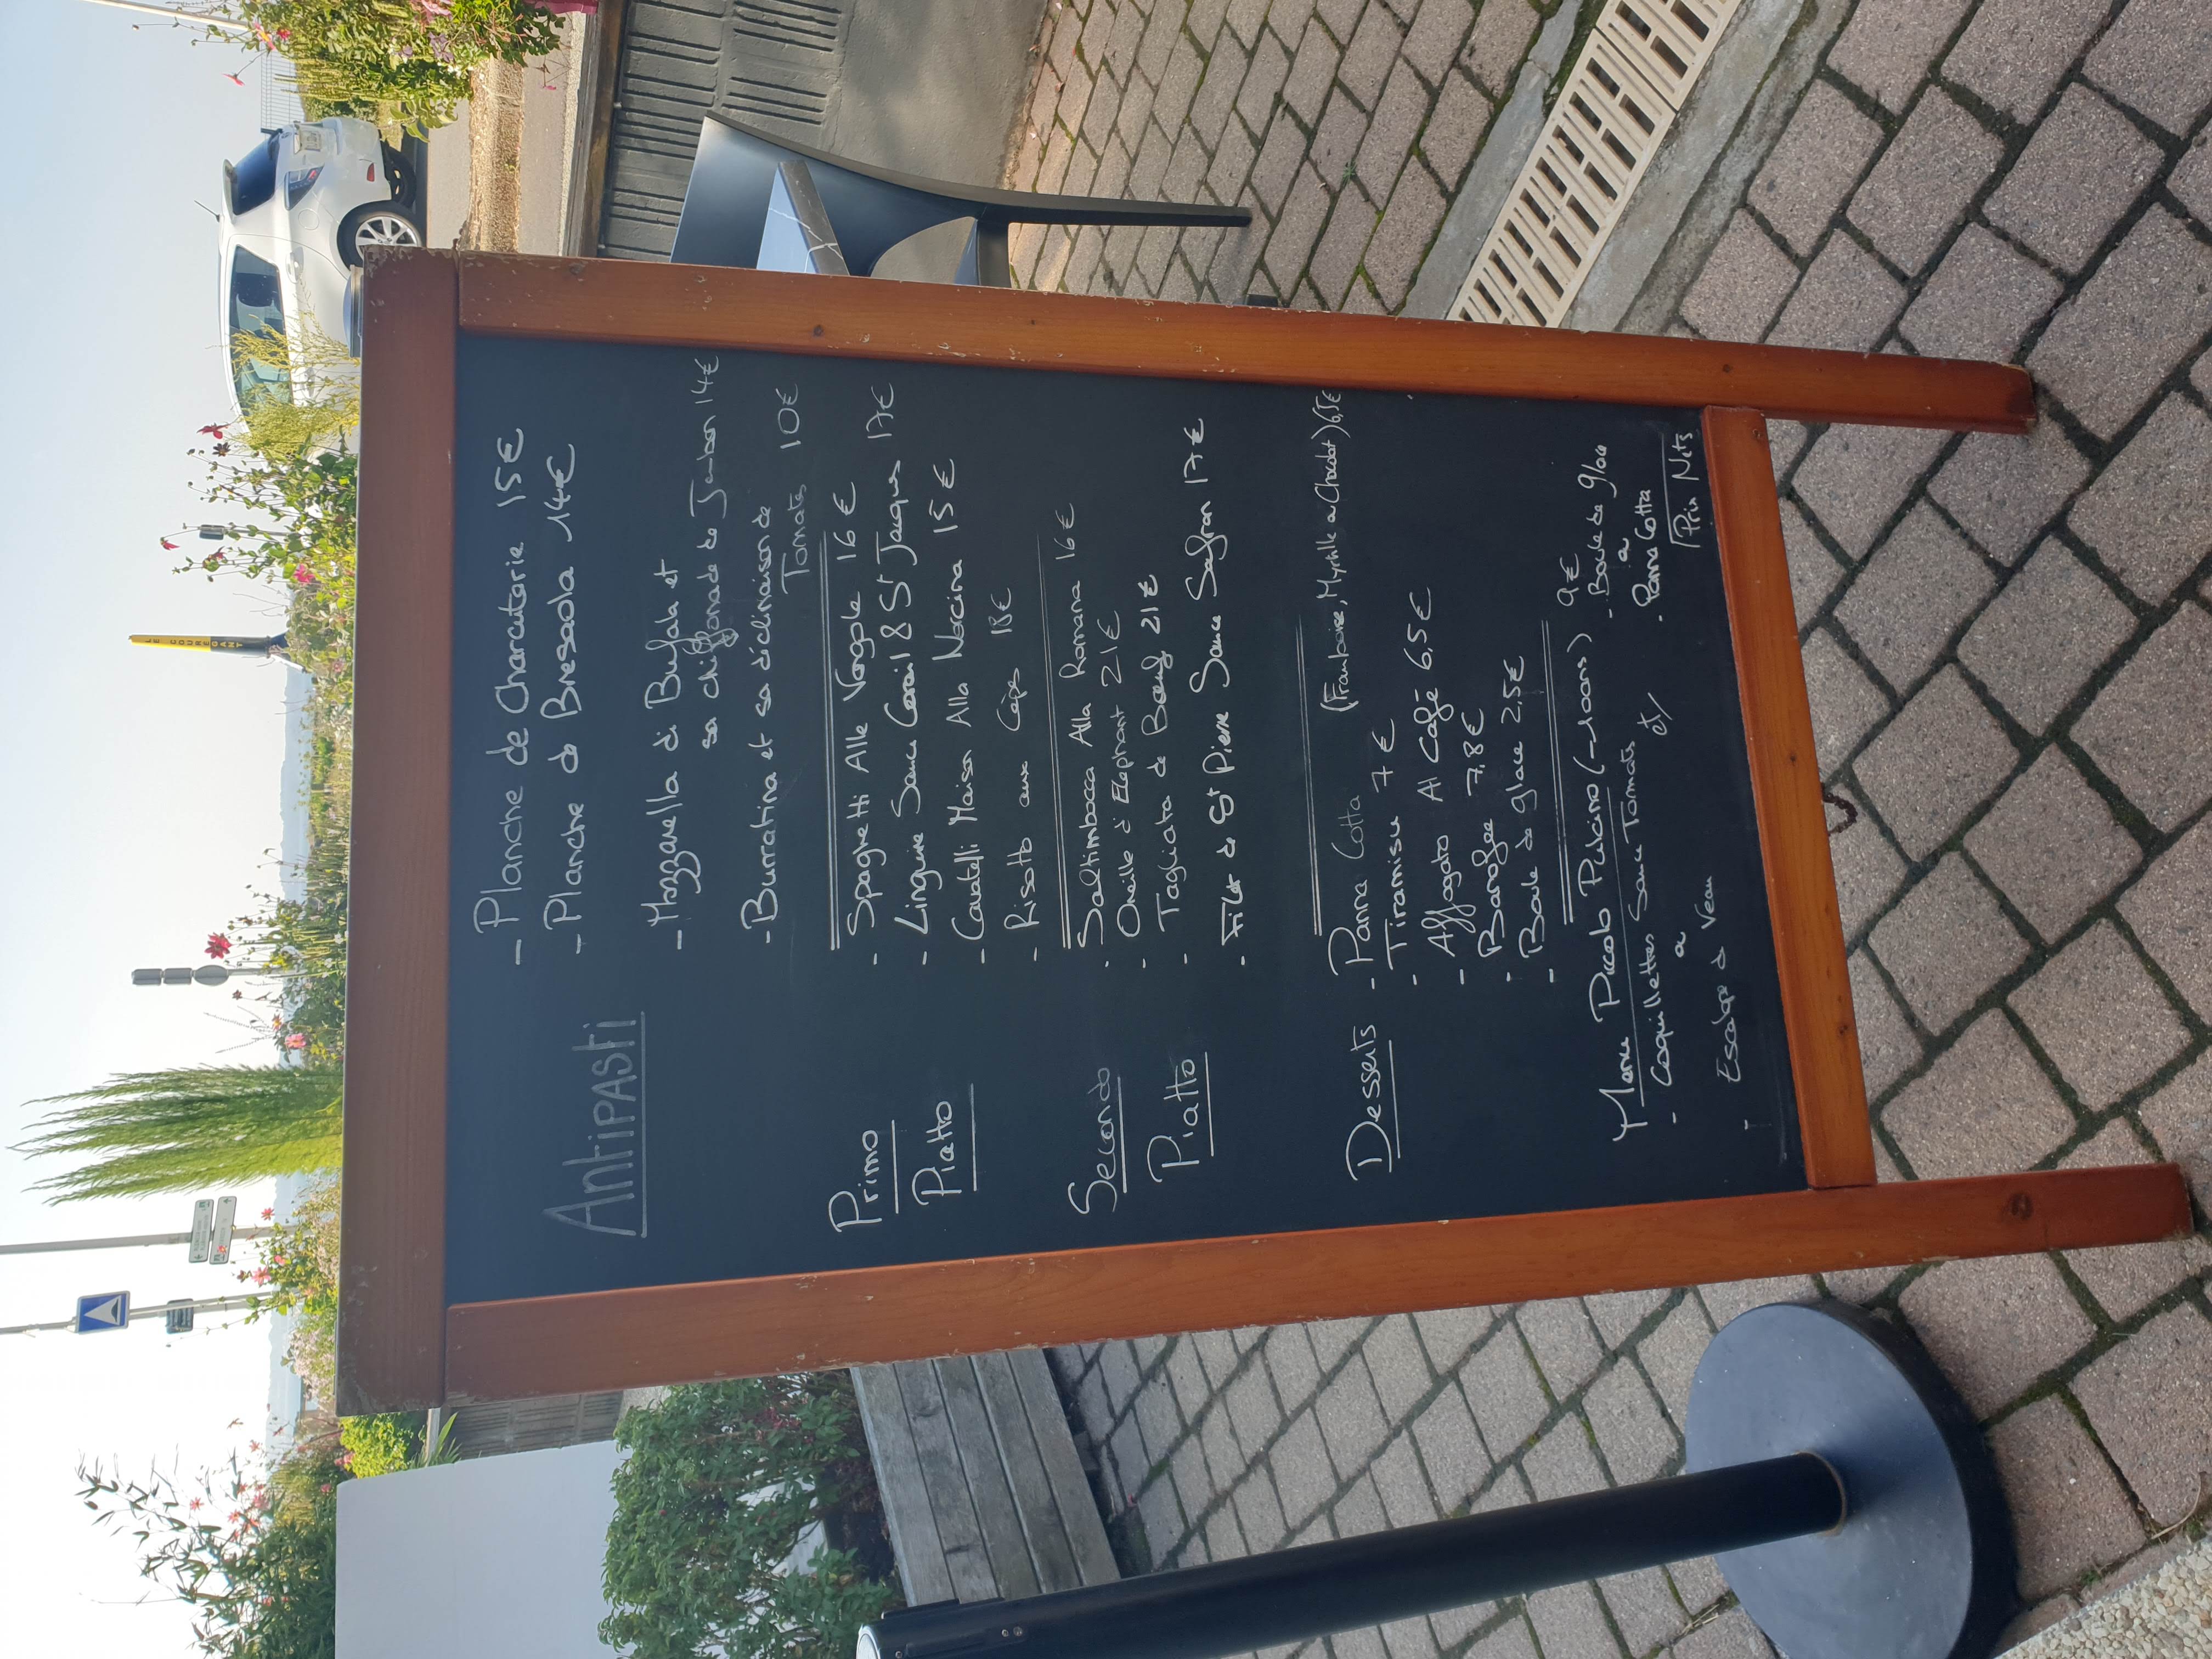 - Planche de Charcuterie 15€
- Planche de Bresaola 14€
Antipasti
- Mozzarella di Bufala et
sa chiffonade de Jambon 14€
- Burratina et sa déclinaison de
Tomates 10€
Primo
Piatto
- Spaghetti Alle Vongole 16€
- Linguine Sauce Corail & St Jacques 17€
- Cavatelli Maison Alla Norcina 15€
- Risotto aux Cèpes 18€
Secondo
Piatto
- Saltimbocca Alla Romana 16€
- Oreille d'Elephant 21€
- Tagliata de Bœuf 21€
- Filet de St Pierre Sauce Safran 17€
Desserts
- Panna Cotta (Framboise, Myrtille ou Chocolat) 6,5€
- Tiramisu 7€
- Affogato Al Caffè 6,5€
- Banoffee 7,8€
- Boule de glace 2,5€
Menu Piccolo Pulcino (-10ans) 9€
- Coquillettes Sauce Tomate
ou
- Escalope de Veau
et/
- Boule de glace
ou
- Panna Cotta
Prix Nets
LE COUREGANT